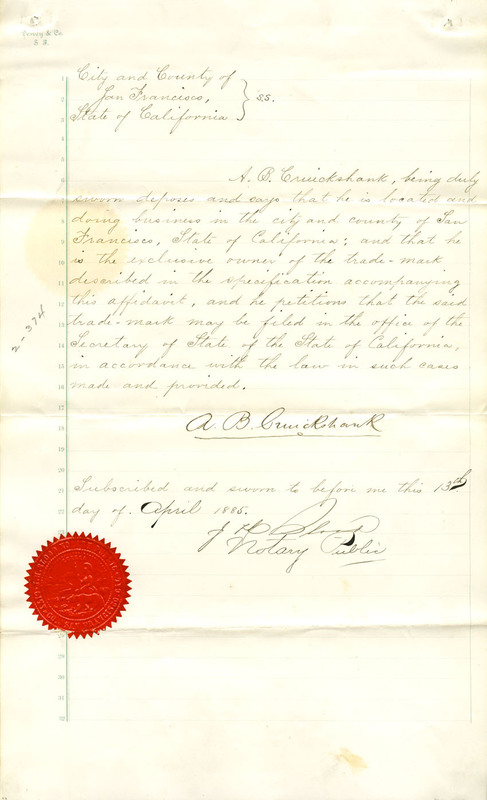 City and County of
San Francisco, } s.s.
State of California
A. B. Cruickshank, being duly
sworn deposes and says that he is located and
doing business in the city and county of San
Francisco, State of California; and that he
is the exclusive owner of the trade-mark
described in the specification accompanying
this affidavit, and he petitions that the said
trade-mark may be filed in the office of the
Secretary of State of the State of California,
in accordance with the law in such cases
made and provided.
2-374
A. B. Cruickshank
Subscribed and sworn to before me this 13th
day of April 1885.
J. H.
Notary Public